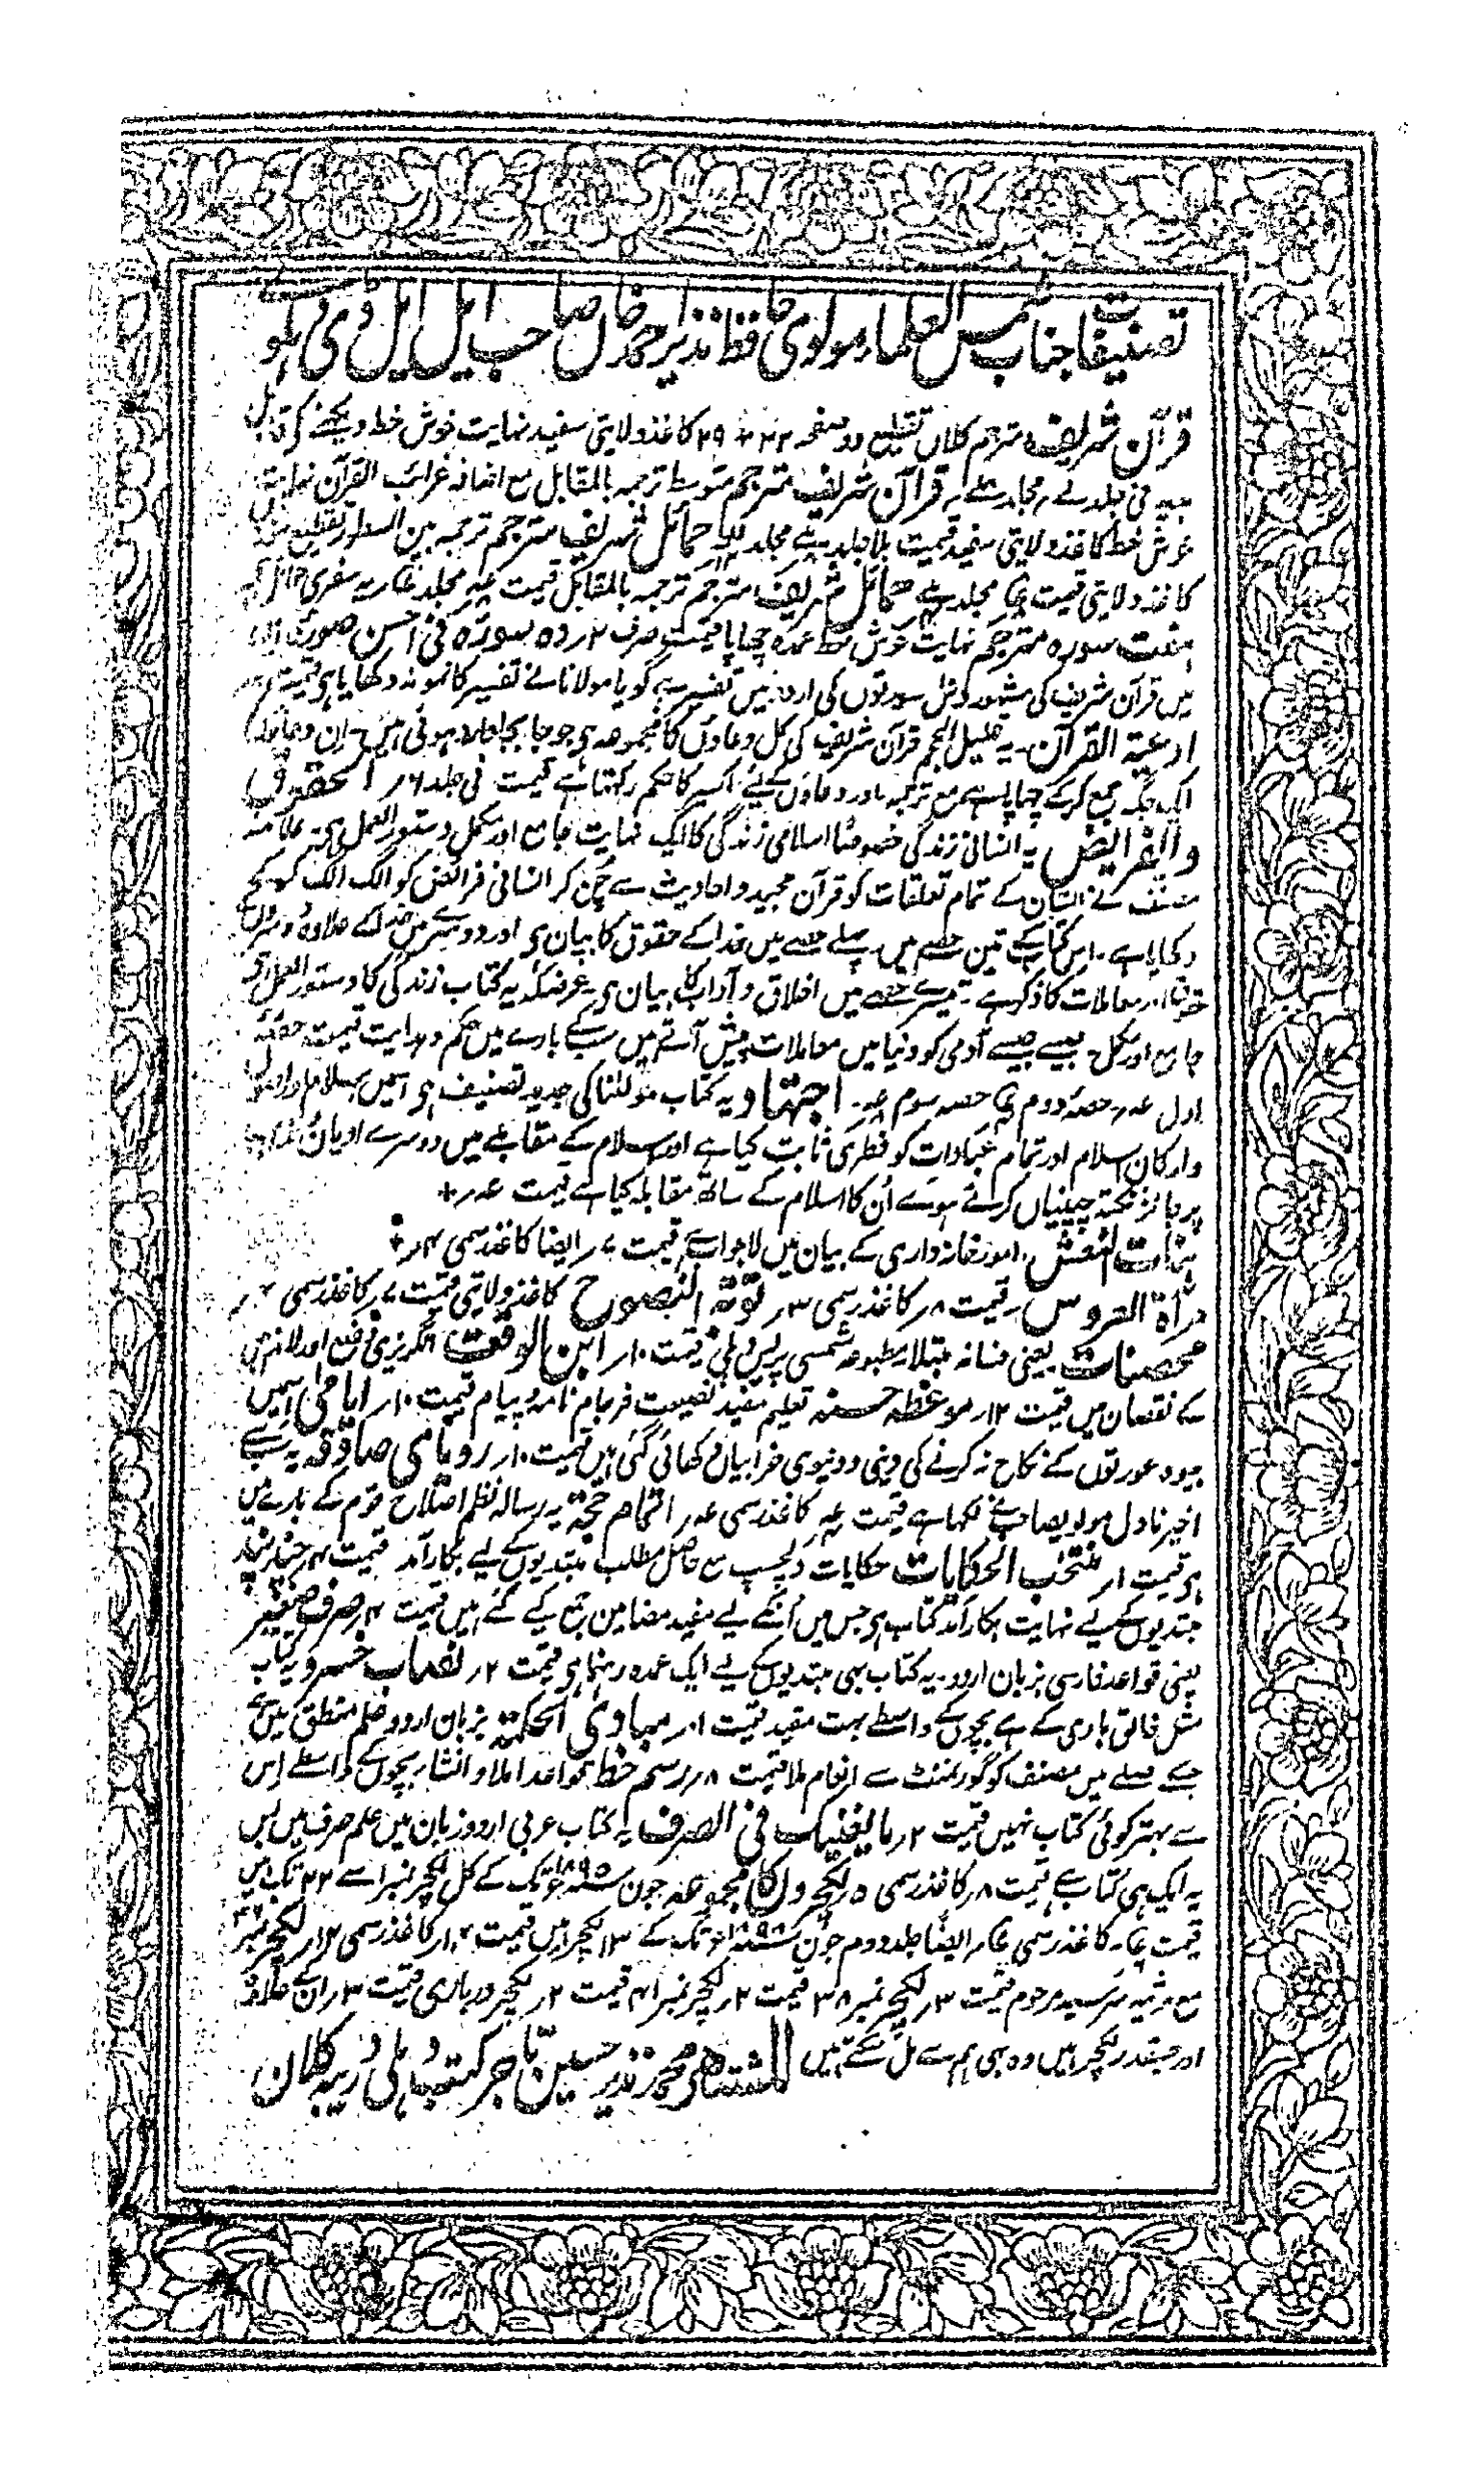 تصنیفات جناب شمس العلماء مولوی حافظ نذیر احمد خاں صاحب ایل ایل ڈی دہلوی
قرآن شریف مترجم کلاں تقطیع دو صفحہ ۲۲ + ۲۹ کاغذ ولایتی سفید نہایت خوش خط دیکھنے کے قابل
فی جلد مجلد قرآن شریف مترجم متوسط ترجمہ بالمقابل مع اضافہ غرائب القرآن نہایت
خوش خط کاغذ ولایتی سفید قیمت بلا جلد مجلد حمائل شریف مترجم ترجمہ بین السطور تقطیع
کاغذ ولایتی قیمت مجلد حمائل شریف مترجم ترجمہ بالمقابل قیمت مجلد یہ سفری حمائل ہے
ہفت سورہ مترجم نہایت خوش خط عمدہ چھاپا قیمت صرف ۲ر دہ سورہ فی احسن صورۃ
میں قرآن شریف کی مشہور دس سورتوں کی اردو میں تفسیر ہے گویا مولانا نے تفسیر کا نمونہ دکھایا ہی قیمت
ادعیۃ القرآن۔ یہ قلیل الحجم قرآن شریف کی کل دعاؤں کا مجموعہ ہی جو جا بجا وارد ہوئی ہیں۔ ان دعاؤں
ایک جگہ جمع کر کے چھاپا ہے مع ترجمہ اور دعاؤں کے لیے اکسیر کا حکم رکھتا ہے قیمت فی جلد ۶ر الحقوق
والفرایض یہ انسانی زندگی خصوصاً اسلامی زندگی کا ایک نہایت جامع اور مکمل دستور العمل ہی علامہ
مصنف نے انسان کے تمام تعلقات کو قرآن مجید و احادیث سے چن کر انسانی فرائض کو الگ الگ کر کے
دکھایا ہے۔ اس کتاب کے تین حصے ہیں۔ پہلے حصے میں خدا کے حقوق کا بیان ہی اور دوسرے میں خدا کے علاوہ دوسروں کے
حقوق اور معاملات کا ذکر ہے۔ تیسرے حصے میں اخلاق و آداب کا بیان ہی۔ غرضکہ یہ کتاب زندگی کا دستور العمل ہی
جامع اور مکمل۔ جیسے جیسے آدمی کو دنیا میں معاملات پیش آتے ہیں سب کے بارے میں حکم و ہدایت قیمت حصۂ
اول حصۂ دوم حصۂ سوم اجتہاد یہ کتاب مولٰنا کی جدید تصنیف ہی اسمیں اسلام
وارکان اسلام اور تمام عبادات کو فطری ثابت کیا ہے اور اسلام کے مقابلے میں دوسرے ادیان
پر جائز نکتہ چینیاں کرتے ہوے اُن کا اسلام کے ساتھ مقابلہ کیا ہے قیمت +
بنات النعش۔ امور خانہ داری کے بیان میں لاجواب ہے قیمت ۷ر ایضا کاغذ رسمی ۴ر
مرأۃ العروس۔ قیمت ۸ر کاغذ رسمی ۳ر توبۃ النصوح کاغذ ولایتی قیمت ۷ر کاغذ رسمی
محصنات یعنی فسانہ مبتلا مطبوعہ شمسی پریس دہلی قیمت ۱۰ر ابن الوقت انگریزی وضع اور
کے نقصان میں قیمت ۱۲ر موعظہ حسنہ تعلیم مفید نصیحت فرجام نامہ و پیام قیمت ۱۰ر ایامیٰ اِسمیں
بیوہ عورتوں کے نکاح نہ کرنے کی دینی و دنیوی خرابیاں دکھائی گئی ہیں قیمت ۱۰ر رویاے صادقہ یہ سب سے
اخیر ناول مولویصاحب نے لکھا ہے قیمت کاغذ رسمی اتمام حجۃ یہ رسالہ نظم اصلاح قوم کے بارے میں
ہی قیمت ۱ر منتخب الحکایات حکایات دلچسپ مع حاصل مطلب مبتدیوں کے لیے بکارآمد قیمت ۴ر چند پند
مبتدیوں کے لیے نہایت بکارآمد کتاب ہی جس میں اُنکے لیے مفید مضامین جمع کیے گئے ہیں قیمت ۴ر صرف صغیر
یعنی قواعد فارسی بزبان اردو۔ یہ کتاب بھی مبتدیوں کے لیے ایک عمدہ رہنما ہی قیمت ۲ر نصاب خسرو یہ کتاب
مثل خالق باری کے ہے بچوں کے واسطے بہت مفید قیمت ۱ر مبادی الحکمۃ بزبان اردو علم منطق میں ہے
جسکے صلے میں مصنف کو گورنمنٹ سے انعام ملا قیمت ۸ر رسم خط قواعد املا و انشا بچوں کے واسطے اِس
سے بہتر کوئی کتاب نہیں قیمت ۲ر مایغنیک فی الصرف یہ کتاب عربی اردو زبان میں علم صرف میں بس
یہ ایک ہی کتاب ہے قیمت ۸ر کاغذ رسمی ۵ر لکچروں کا مجموعہ جون ۱۸۹۵ء تک کے کل لکچر نمبر ۱ سے ۲۲ تک ہیں
قیمت کاغذ رسمی ایضاً جلد دوم جون ۱۸۹۸ء تک کے ۱۳ لکچر ہیں قیمت کاغذ رسمی ۱۲ر لکچر نمبر
مع مرثیہ سر سید مرحوم قیمت ۳ر لکچر نمبر ۳۸ قیمت ۲ر لکچر نمبر ۴۱ قیمت ۲ر لکچر درباری قیمت ۳ر ان کے علاوہ
اور جسقدر لکچر ہیں وہ بھی ہم سے مل سکتے ہیں المشتہر محمد نذیر حسین تاجر کتب دہلی دریبہ کلان